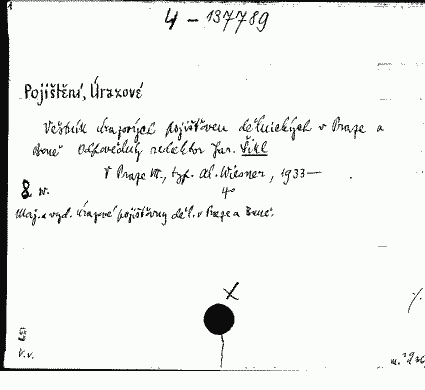 4 - 137789
Pojištění, Úrazové
Věstník úrazových pojišťoven dělnických v Praze a
Brně Odpovědný redaktor Jar. Šikl
V Praze VII., typ. Al. Wiesner, 1933—
8 w. 4°
Maj. a vyd. Úrazové pojišťovny děl. v Praze a Brně.
V.v.